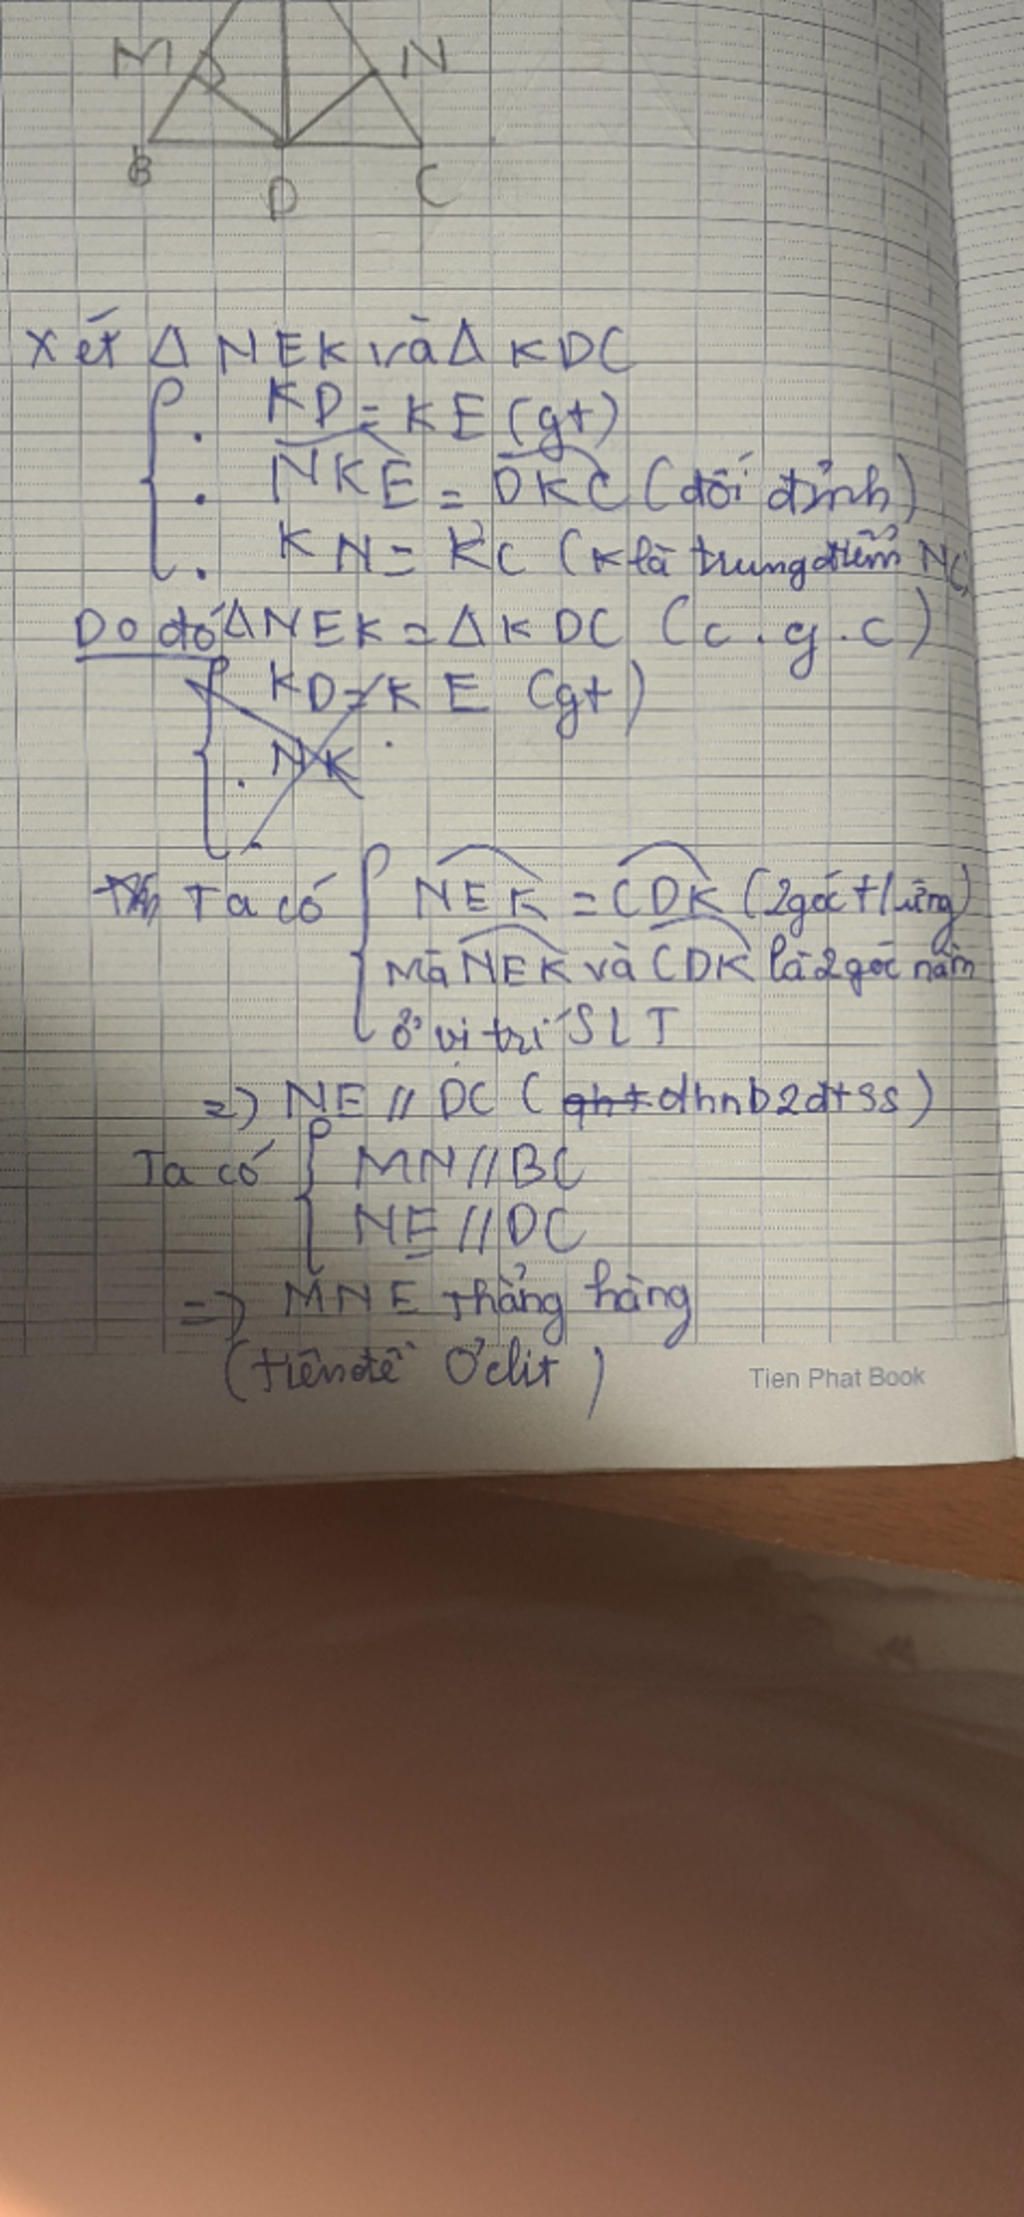 M N
B D C
Xét Δ NEK và Δ KDC
. KD = KE (gt)
. NKE = DKC (đối đỉnh)
. KN = KC (K là trung điểm NC)
Do đó ΔNEK = ΔKDC (c.g.c)
KD = KE (gt)
. NK
Ta có NEK = CDK (2 góc t/ứng)
Mà NEK và CDK là 2 góc nằm
ở vị trí SLT
=> NE // DC (dhnb 2đt ss)
Ta có MN // BC
NE // DC
=> MNE thẳng hàng
(tiên đề Ơclit)
Tien Phat Book